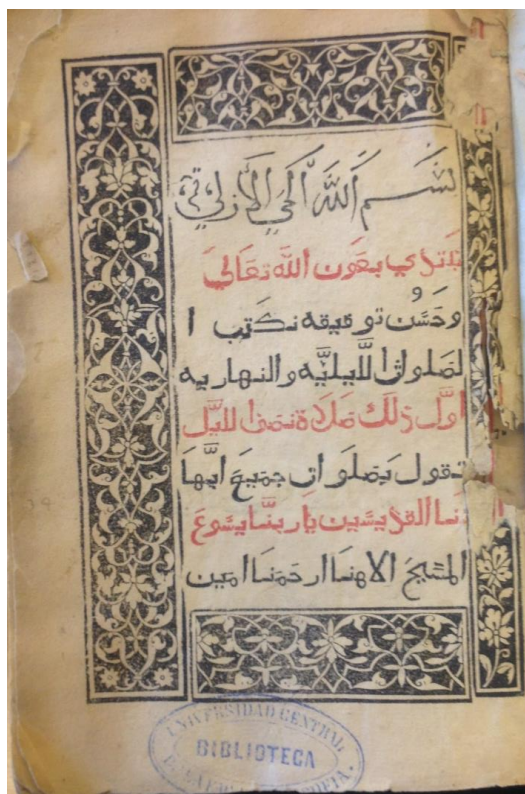 بسم اللَّه الحي الازلي
نبتدي بعون اللَّه تعَالىَ
وحُسَن توفيقه نكَتب ا
لصَلوات اللَّايليَّه والنهاريه
اوَّل ذلَك صَلاة نصَف اللَيَّل
تقول بَصَلوات جميَع ابَّهَا
تنَا القديسَّين يا ربنَّا يشوعَ
المسَيح الاهنَا ارحمَنَا امين
UNIVERSIDAD CENTRAL
BIBLIOTECA